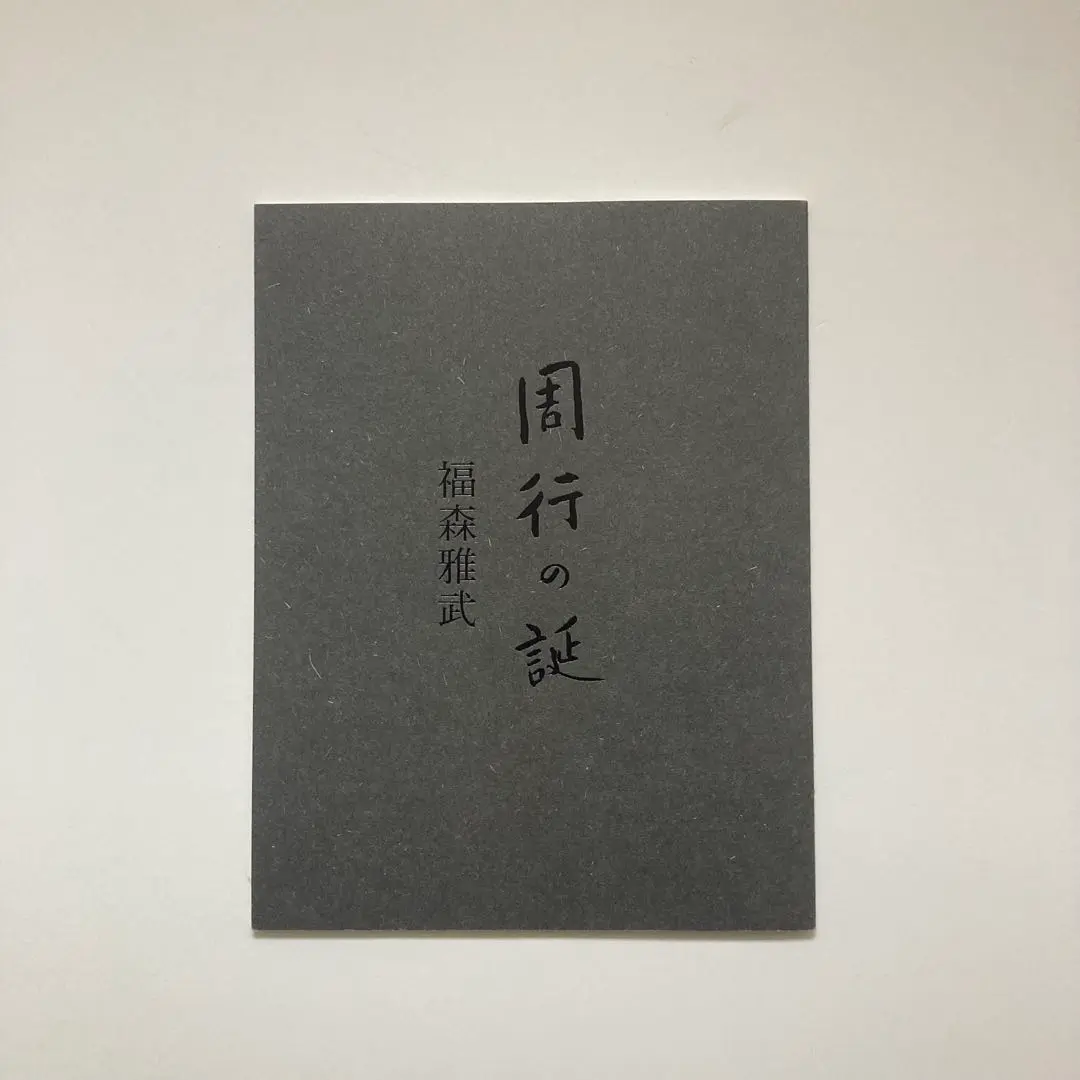 周行の誕
福森雅武